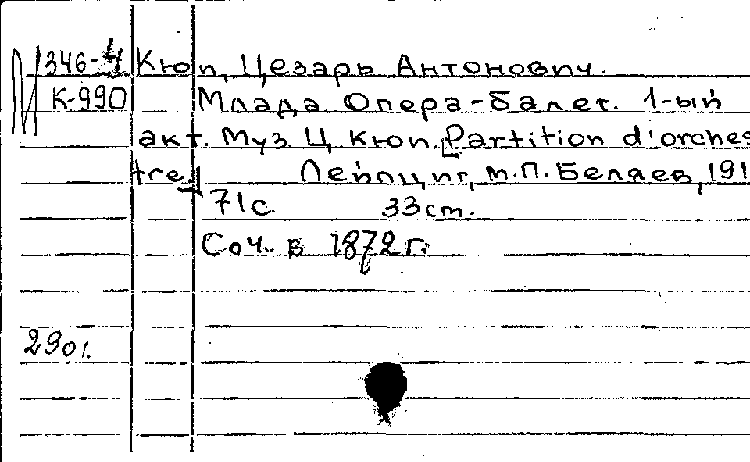 М 346-4 Кюи, Цезарь Антонович.
К-990 Млада Опера-балет. 1-ый
акт. Муз Ц. Кюи. [Partition d'orches
tre] Лейпциг, М.П. Беляев, 191
71с 33cm.
Соч. в 1872 г.
290г.